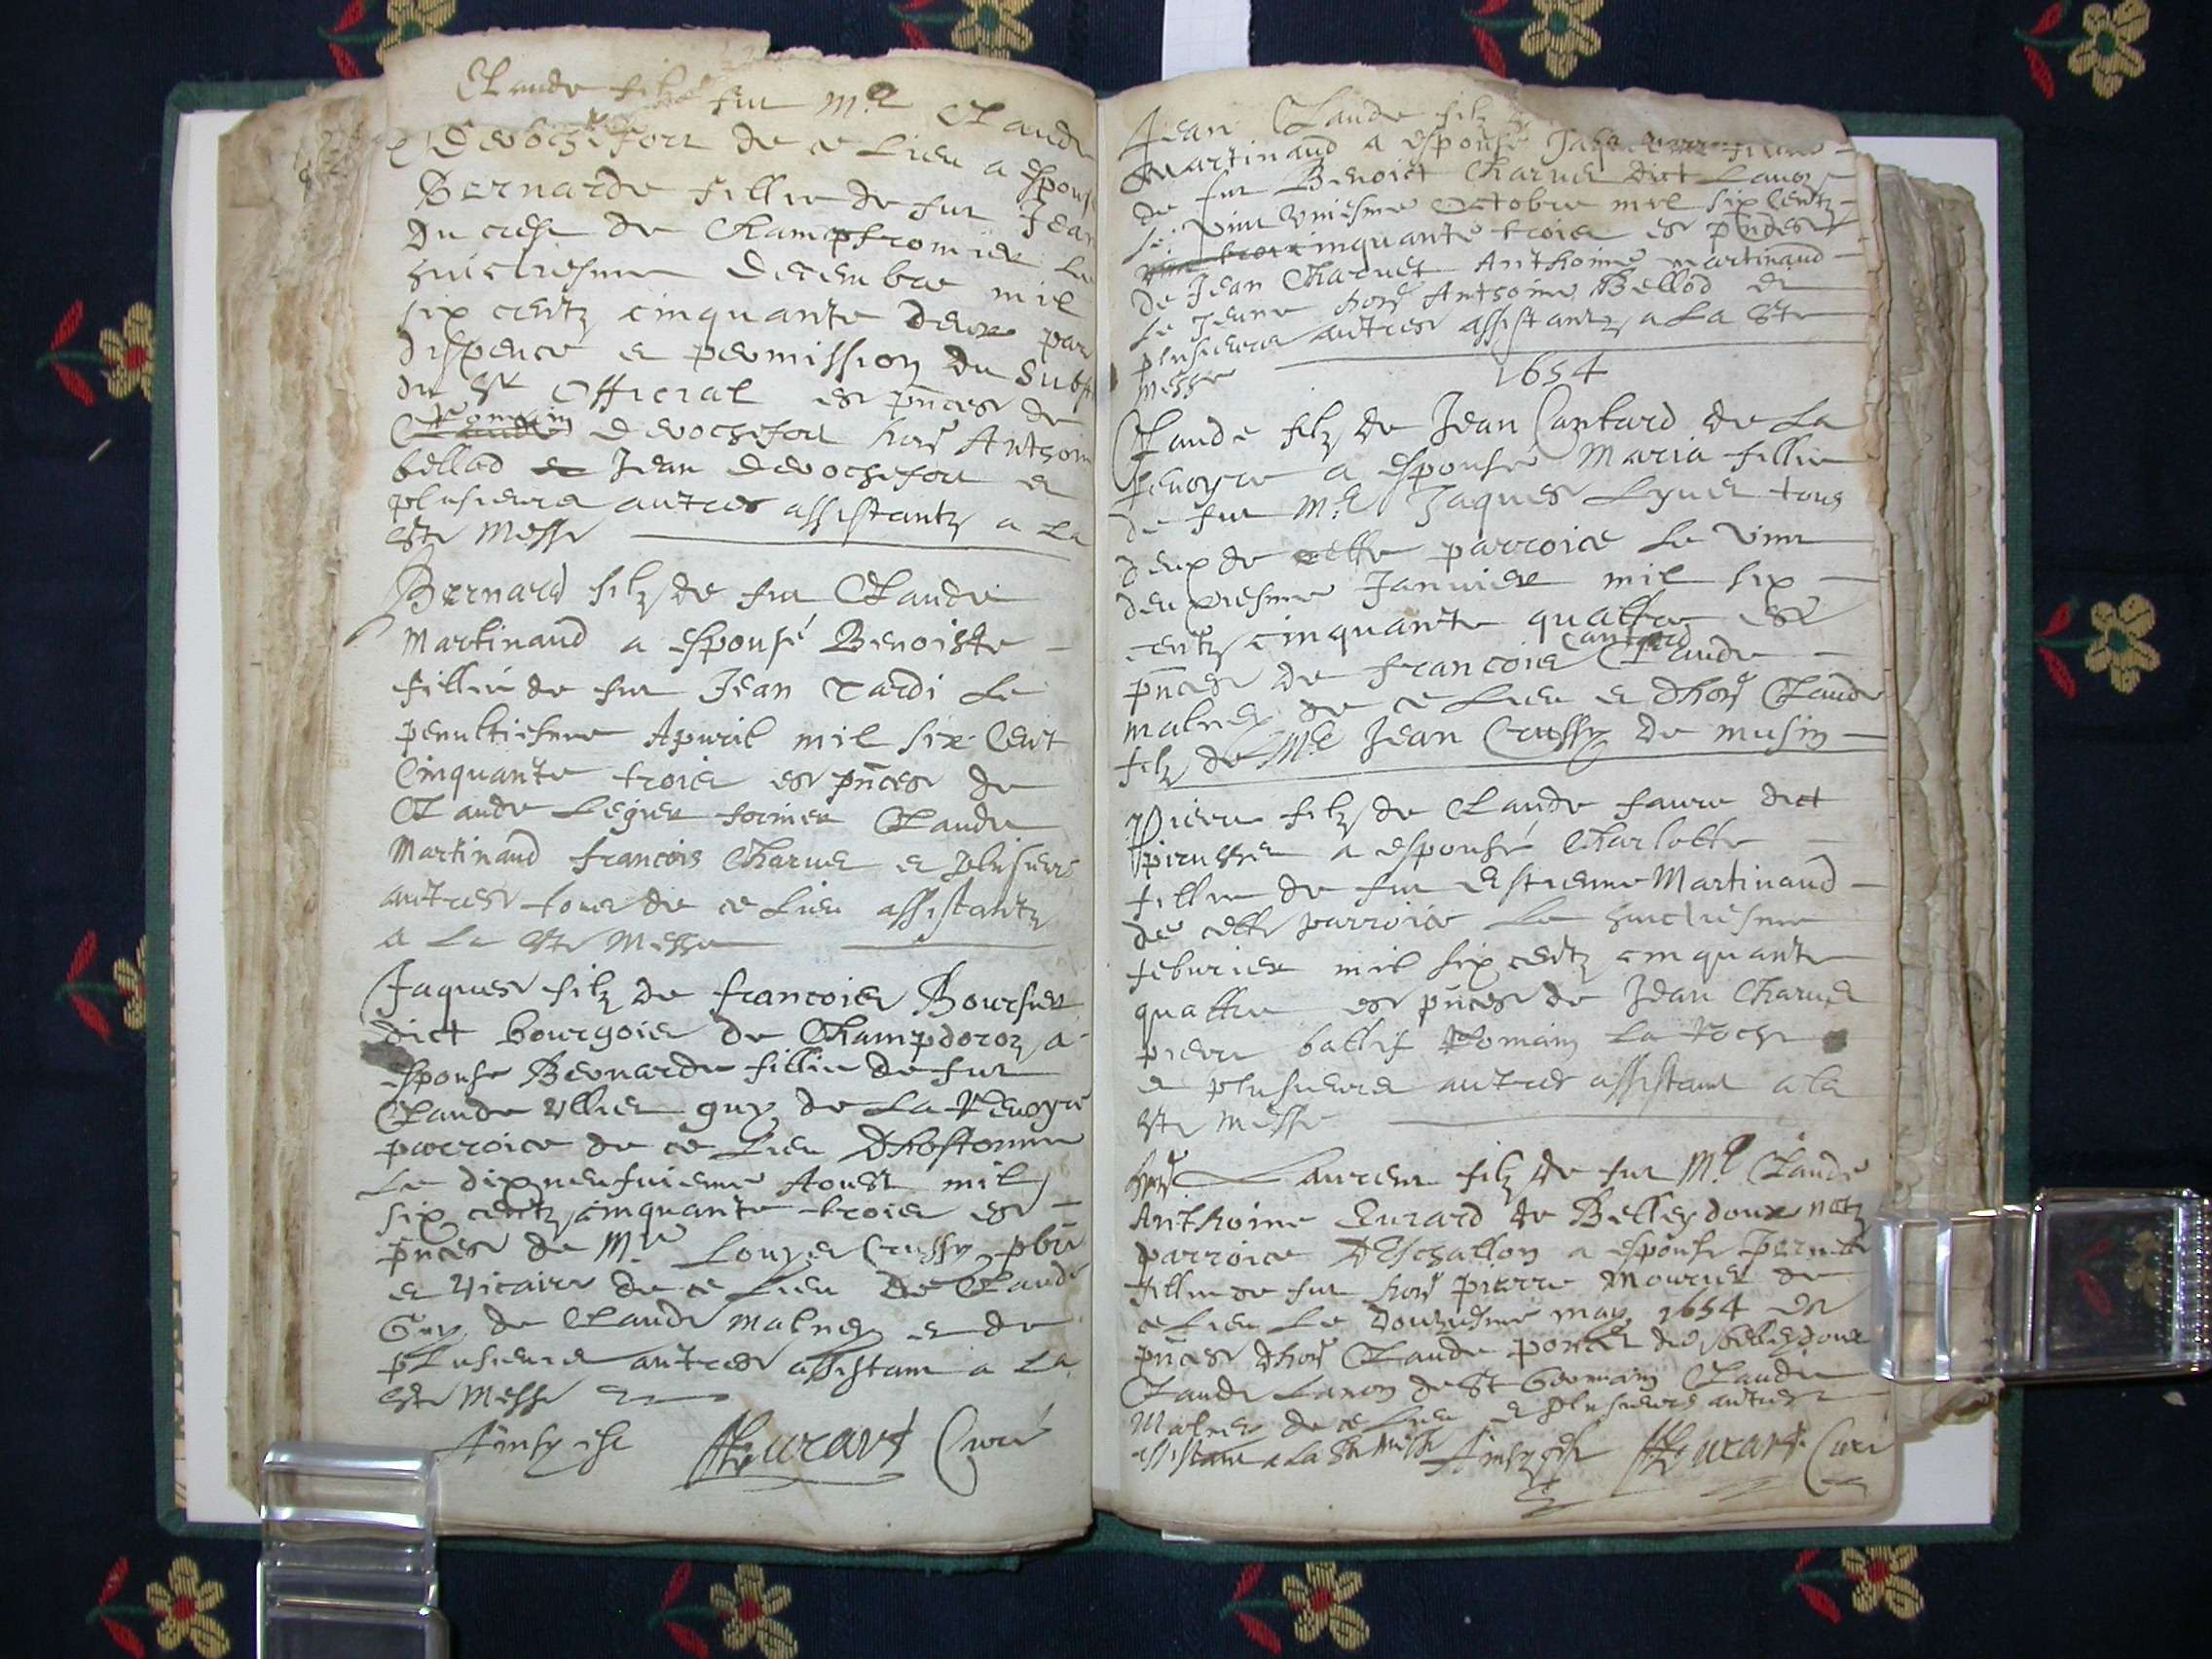 Claude filz fut Me Claude
Derochefort de ce Lieu a espousé
Bernarde fillie de fut Jean
du crest de Champfromier Le
huictiesme Decembre mil
six centz cinquante deux par
dispence et permission du subst
du Sr Official es pnces de
Romain Derochefort hons Anthoine
bellod et Jean Derochefort et
plusieurs autres assistantz a La
Ste Messe
Bernard filz de fut Claude
Martinand a espousé Benoiste
fillie de fut Jean Tardi Le
penultiesme Apuril mil six Cent
Cinquante trois es pnces de
Claude Legier fornier Claude
Martinand francois Charuet et plusieurs
autres tous de ce Lieu assistantz
a La Ste Messe
Jaques filz de francois Boursier
dict bourgois de Champdoroz a
espouse Bernarde fillie de fut
Claude Ulliet guy de La Peuoyre
parroice de ce Lieu Dhostonne
Le dixneufuieme Aoust mil
six centz cinquante trois es
pnces de Mre Louys Crussy pbre
et vicaire de ce Lieu de Claude
Guy de Claude Malney et de
plusieurs autres assistant a La
Ste Messe
Ainsy est Eurard Curé
Jean Claude filz
Martinand a espousé
de fut Benoict Charuet dict
Le vint vniesme Octobre mil six Centz
cinquante trois es pndes
de Jean Charuet Anthoine Martinand
Le Jeune hons Anthoine Bellod et
plusieurs autres assistantz a La Ste
Messe
1654
Claude filz de Jean Cantard de La
Peuoyre a espousé Maria fillie
de fut Me Jaques Lyuet tous
deux de cette parroice Le vint
deuxiesme Januier mil six
centz cinquante quattre es
pnces de francois Cantard Claude
malney de ce Lieu et dhons Claude
filz de Me Jean Crussy de musin
Pierre filz de Claude faure dict
a espousé Charlotte
fillie de fut Estienne Martinand
de cette parroice Le huictiesme
feburier mil six centz cinquante
quattre es pnces de Jean Charuet
pierre ballif Romain La Roche
et plusieurs autres assistant a la
Ste Messe
hons Laurent filz de fut Me Claude
Anthoine Eurard de Belleydoux
parroice D'Eschallon a espouse pernette
fillie de fut hons pierre Mourier de
ce Lieu Le Douziesme may 1654 es
pnces dhons Claude poncet de belleydoux
Claude Lanon de St Germain Claude
Malney de ce Lieu et plusieurs autres
assistant a La Ste Messe Ainsy est Eurard Curé